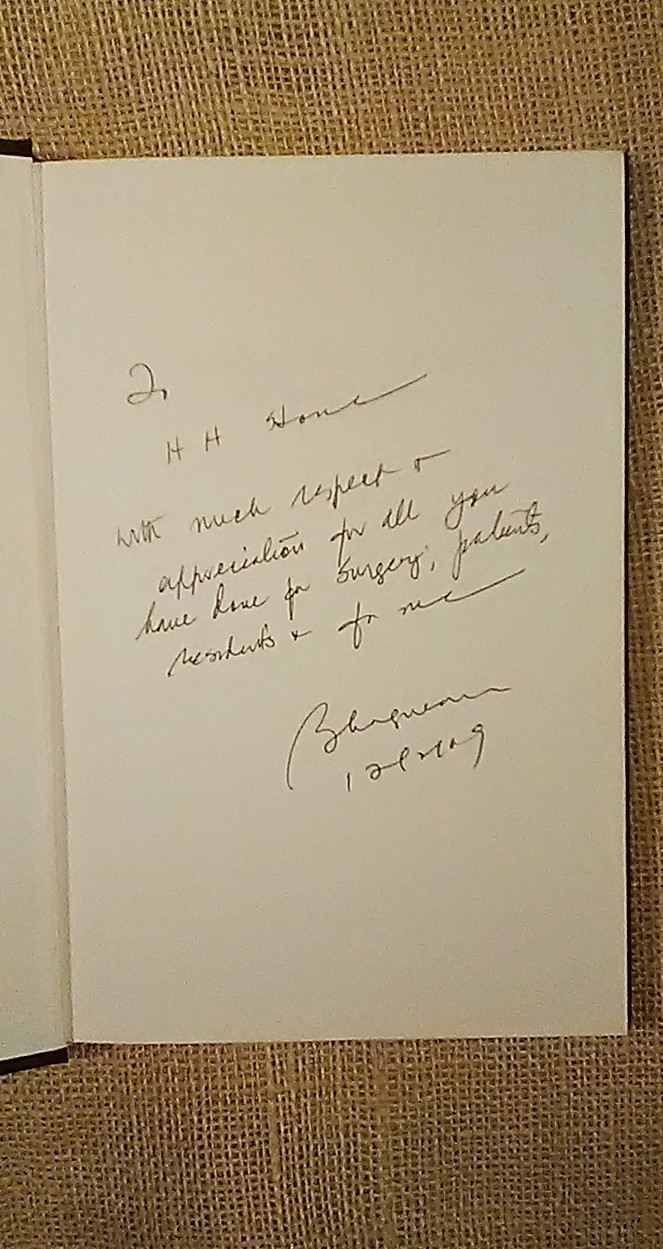 To
H H Stone
with much respect &
appreciation for all you
have done for surgery, patients,
residents & for me